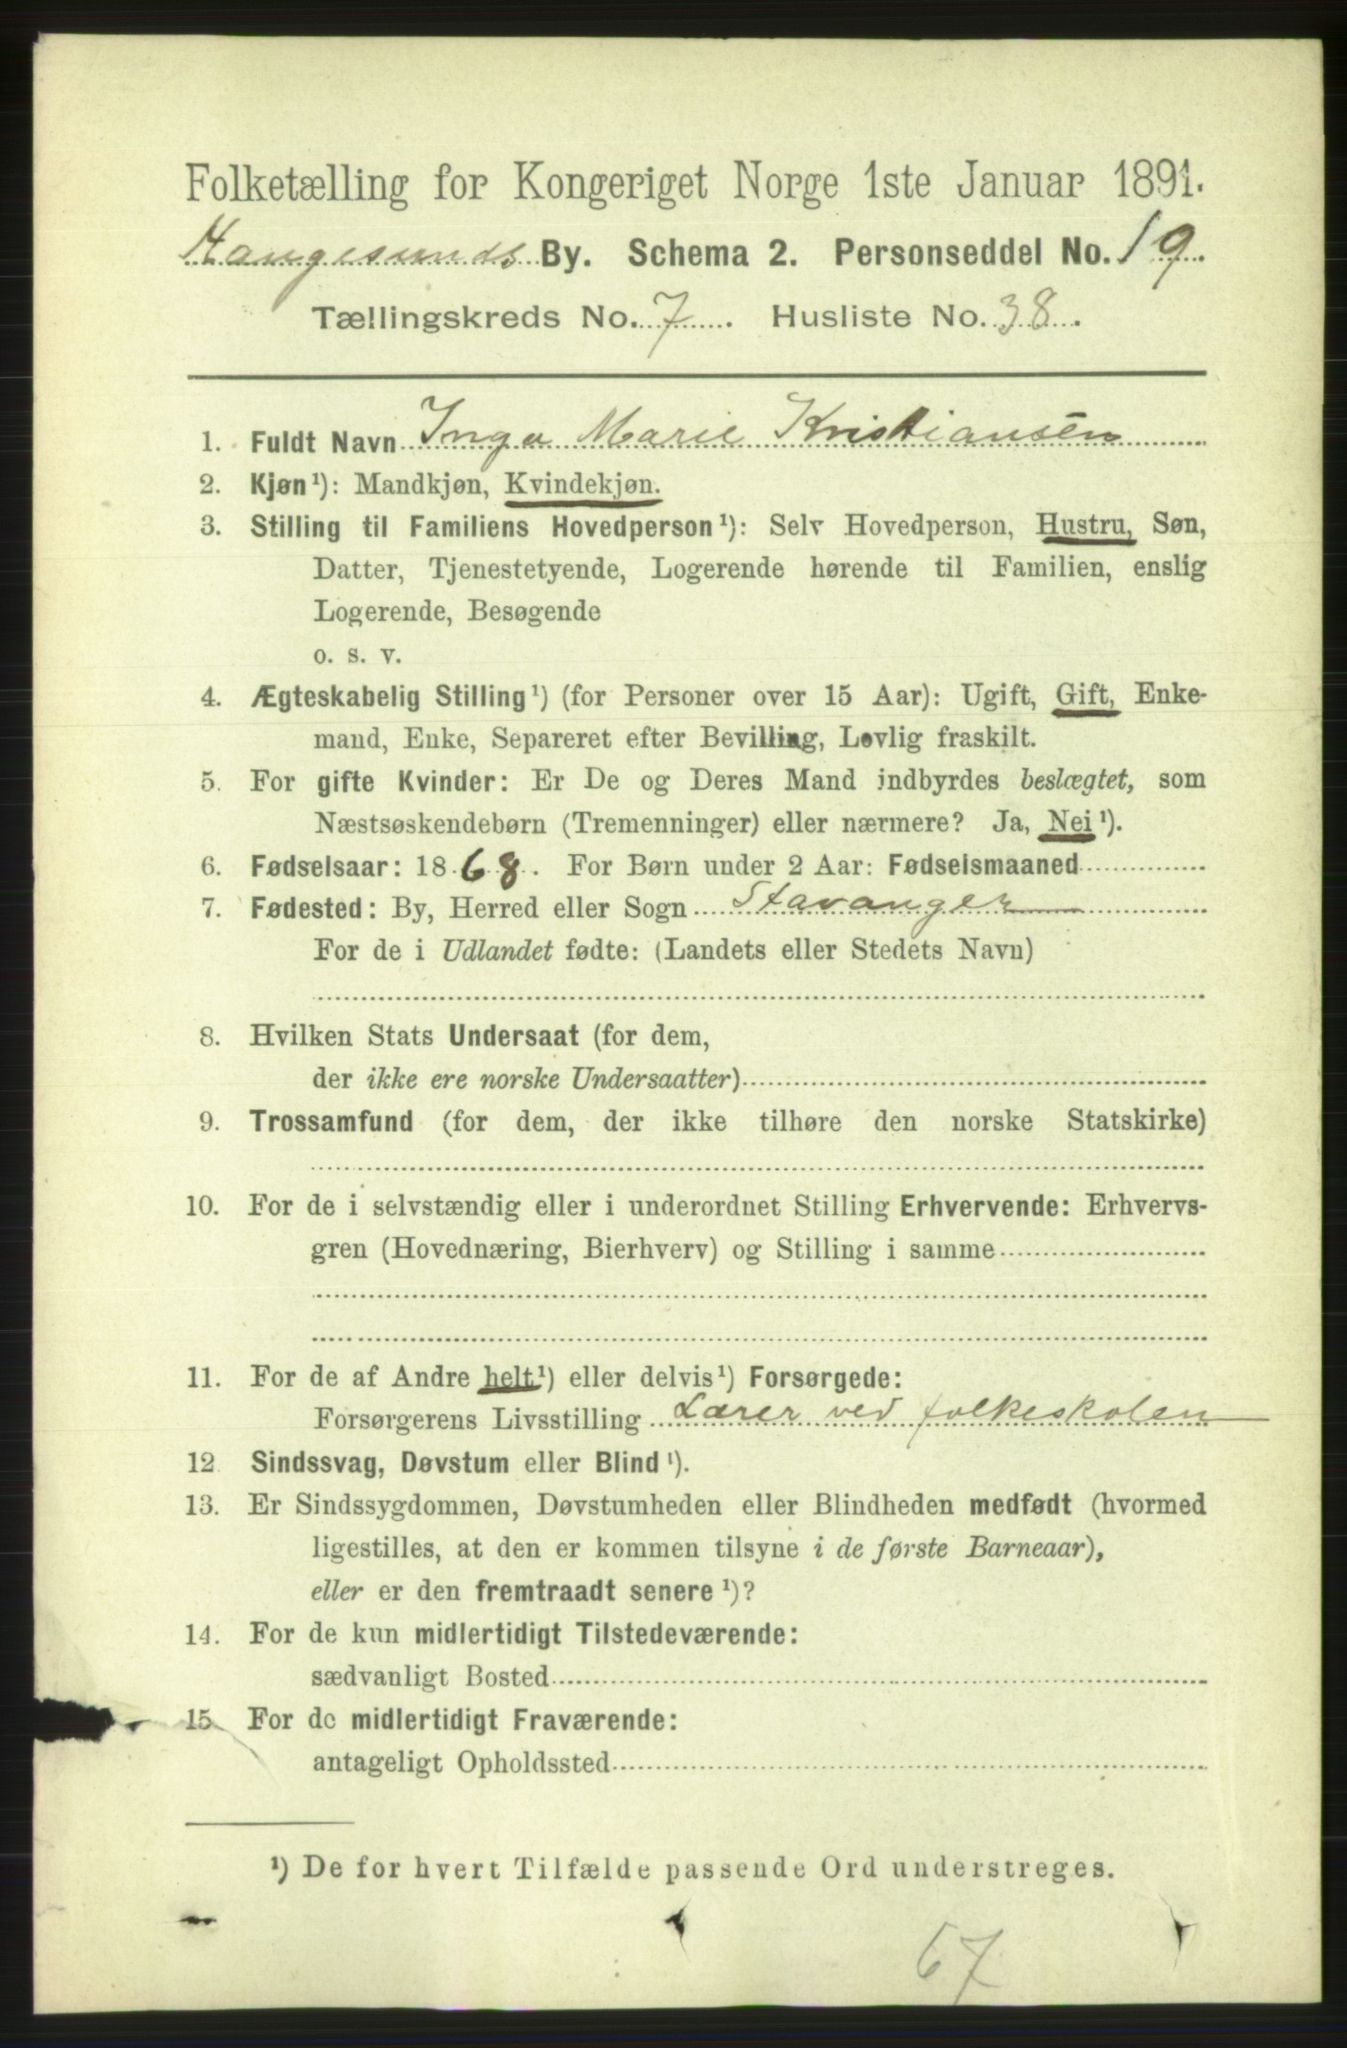 Folketælling for Kongeriget Norge 1ste Januar 1891.
Haugesunds By. Schema 2. Personseddel No. 19.
Tællingskreds No. 7. Husliste No. 38.
1. Fuldt Navn Inga Marie Kristiansen
2. Kjøn¹): Mandkjøn, Kvindekjøn.
3. Stilling til Familiens Hovedperson¹): Selv Hovedperson, Hustru, Søn,
Datter, Tjenestetyende, Logerende hørende til Familien, enslig
Logerende, Besøgende
o. s. v.
4. Ægteskabelig Stilling¹) (for Personer over 15 Aar): Ugift, Gift, Enke-
mand, Enke, Separeret efter Bevilling, Lovlig fraskilt.
5. For gifte Kvinder: Er De og Deres Mand indbyrdes beslægtet, som
Næstsøskendebørn (Tremenninger) eller nærmere? Ja, Nei¹).
6. Fødselsaar: 1868. For Børn under 2 Aar: Fødselsmaaned
7. Fødested: By, Herred eller Sogn Stavanger
For de i Udlandet fødte: (Landets eller Stedets Navn)
8. Hvilken Stats Undersaat (for dem,
der ikke ere norske Undersaatter)
9. Trossamfund (for dem, der ikke tilhøre den norske Statskirke)
10. For de i selvstændig eller i underordnet Stilling Erhvervende: Erhvervs-
gren (Hovednæring, Bierhverv) og Stilling i samme
11. For de af Andre helt¹) eller delvis¹) Forsørgede:
Forsørgerens Livsstilling Lærer ved folkeskolen
12. Sindssvag, Døvstum eller Blind¹).
13. Er Sindssygdommen, Døvstumheden eller Blindheden medfødt (hvormed
ligestilles, at den er kommen tilsyne i de første Barneaar),
eller er den fremtraadt senere¹)?
14. For de kun midlertidigt Tilstedeværende:
sædvanligt Bosted
15. For de midlertidigt Fraværende:
antageligt Opholdssted
¹) De for hvert Tilfælde passende Ord understreges.
67